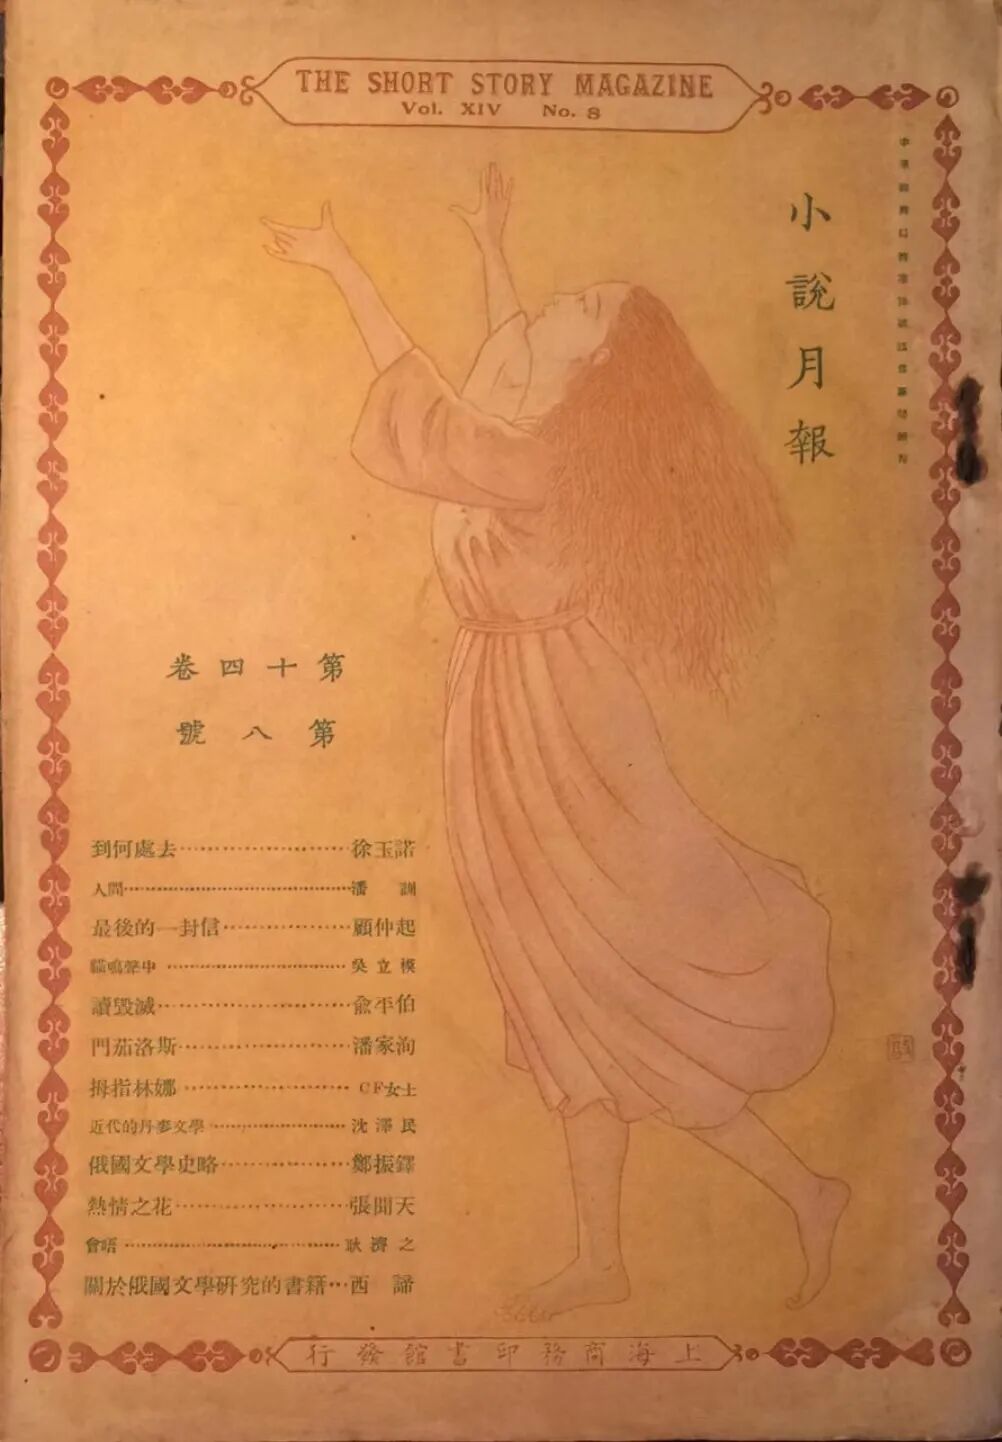 THE SHORT STORY MAGAZINE
Vol. XIV No. 8
小說月報
第十四卷
第八號
到何處去……………………徐玉諾
人間……………………潘訓
最後的一封信………………顧仲起
貓鳴聲中……………………吳立模
讀毀滅……………………兪平伯
門茄洛斯……………………潘家洵
拇指林娜……………………CF女士
近代的丹麥文學………………沈澤民
俄國文學史略………………鄭振鐸
熱情之花……………………張聞天
會晤……………………耿濟之
關於俄國文學硏究的書籍…西諦
上海商務印書館發行